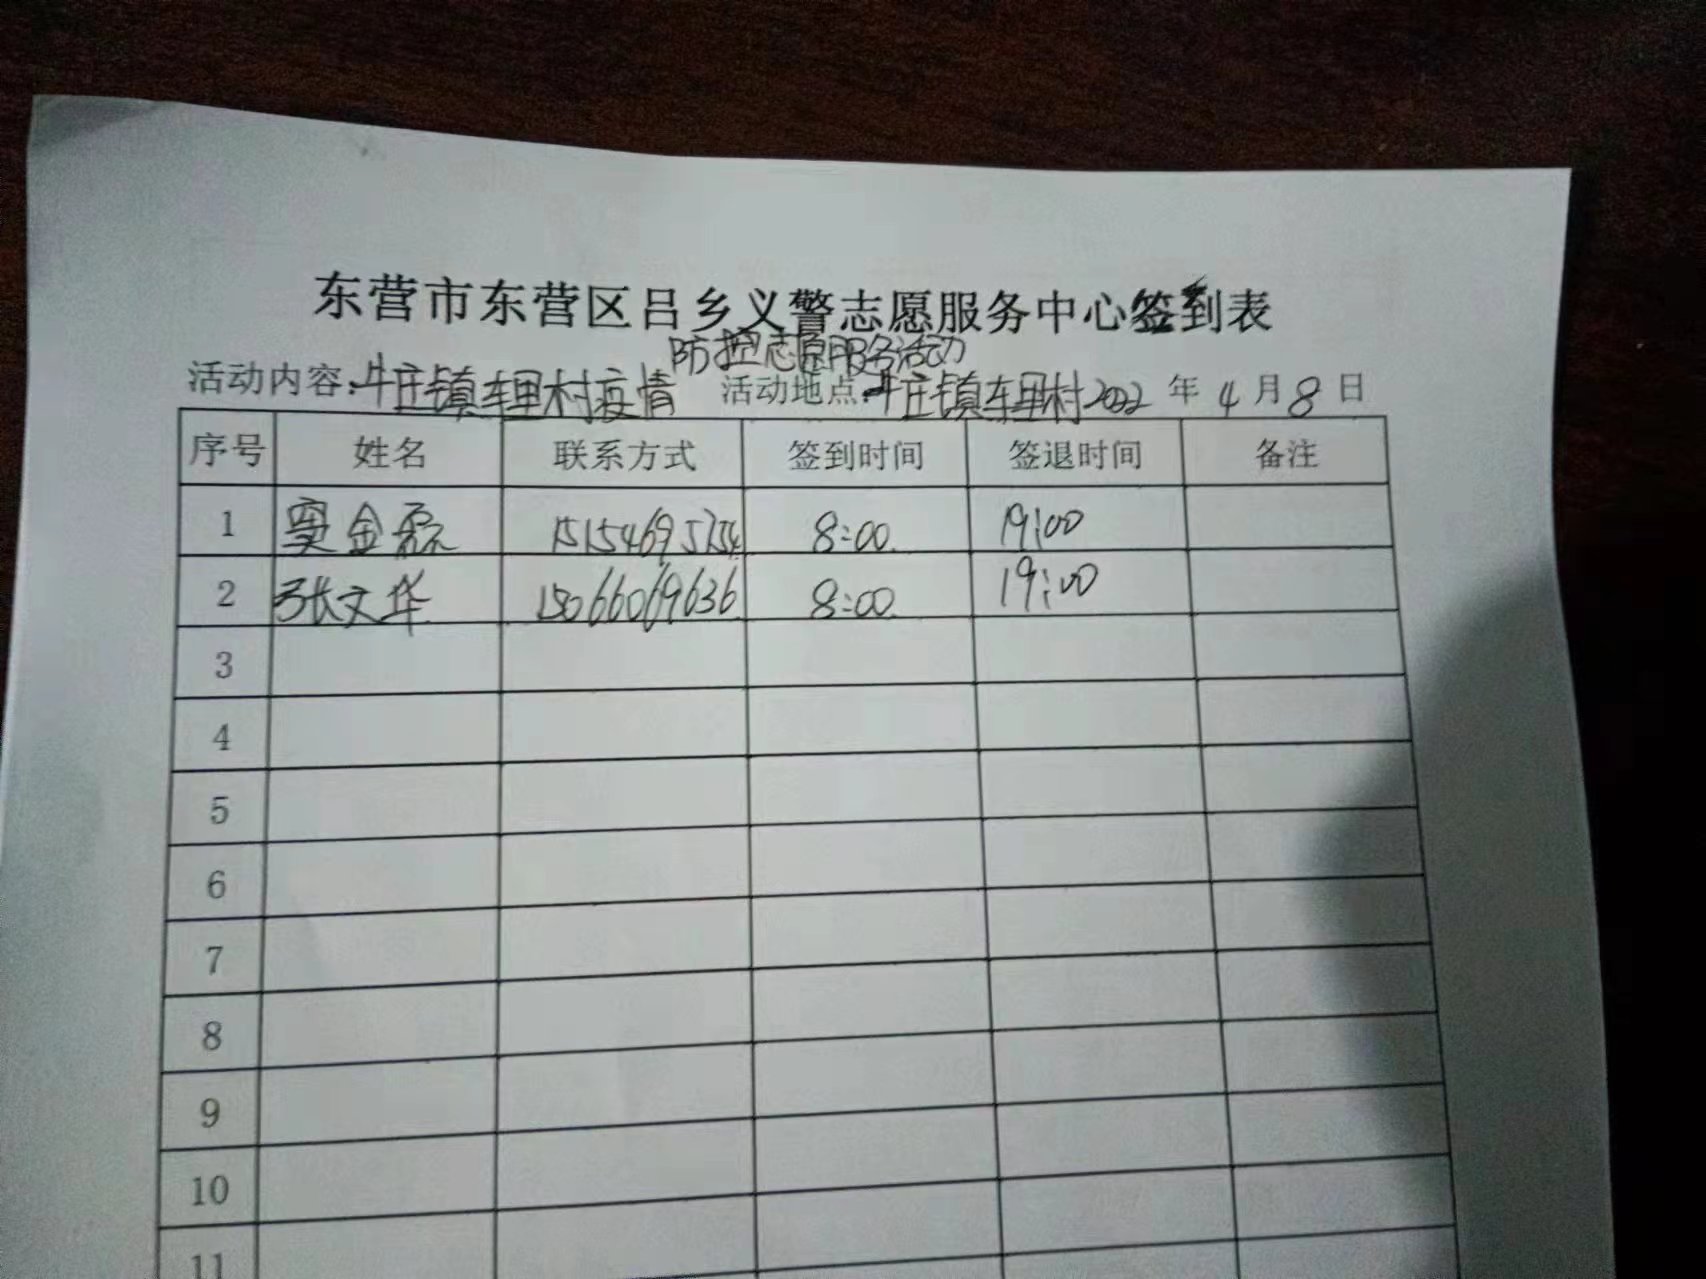 东营市东营区吕乡义警志愿服务中心签到表
防控志愿服务活动
活动内容:牛庄镇车里村疫情 活动地点:牛庄镇车里村2022年4月8日
序号 姓名 联系方式 签到时间 签退时间 备注
1 窦金磊 15154695754 8:00. 19:00
2 张文华 15066069636 8:00. 19:00
3
4
5
6
7
8
9
10
11